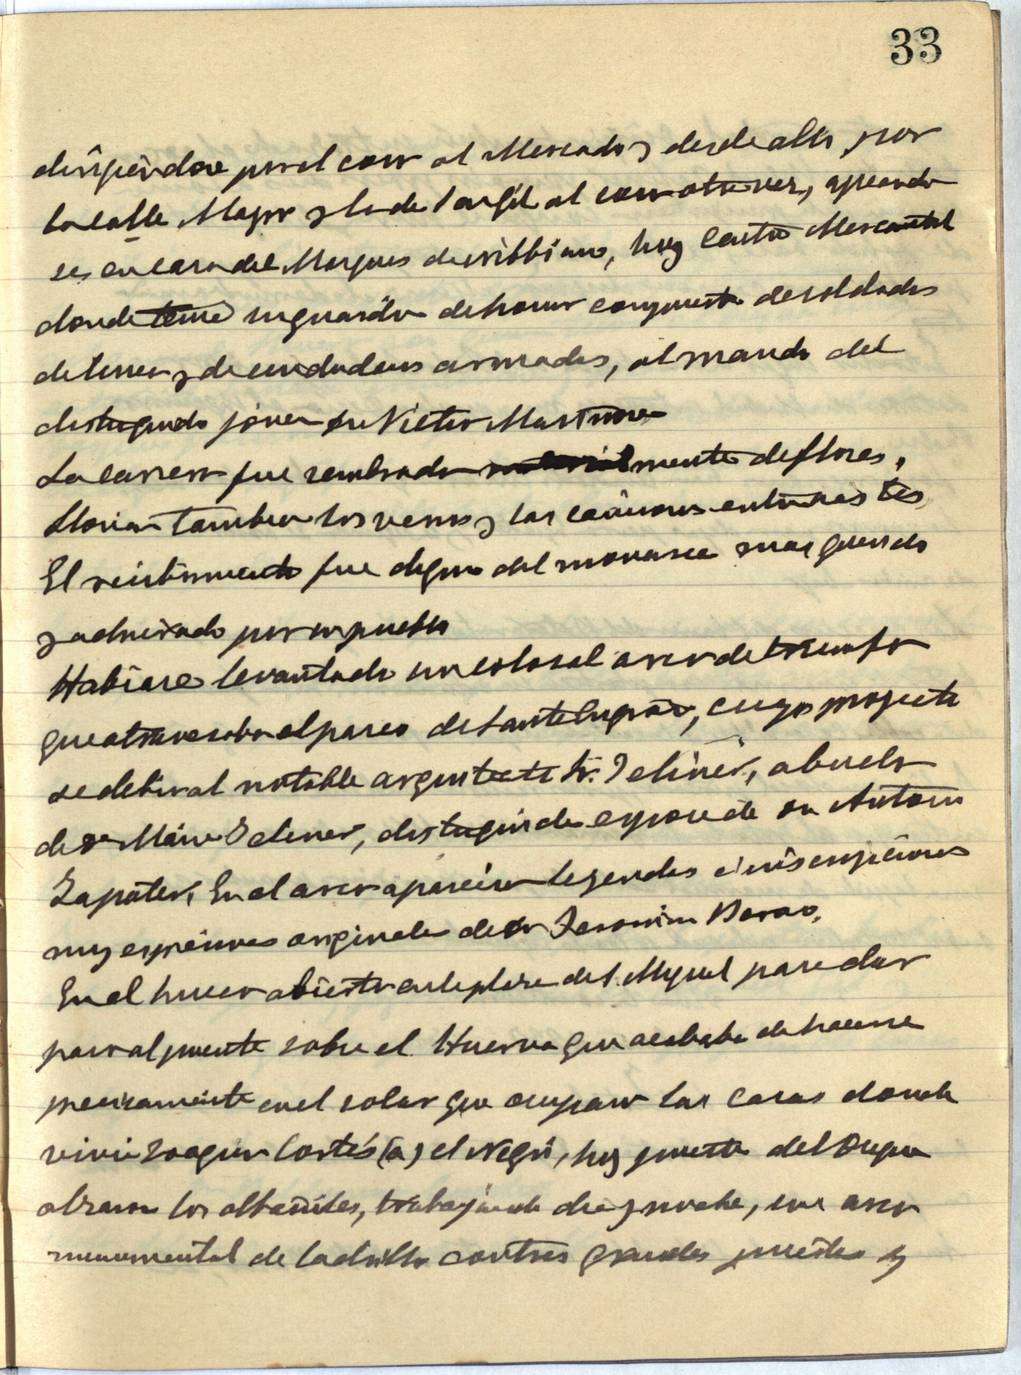 33
dirigiendose por el coso al Mercado y desde alli por
la calle Mayor y la de S. Gil al coso otra vez, apeando
se en casa del Marques de Nibbiano, hoy Centro Mercantil
donde tenia su guardia de honor compuesta de soldados
de linea y de ciudadanos armados, al mando del
distinguido joven Dn Victor Martinez
La carrera fue sembrada materialmente de flores,
llovian tambien los versos y las canciones entusiastas
El recibimiento fue digno del monarca mas querido
y admirado por su pueblo
Habiase levantado un colosal arco de triunfo
que atravesaba el paseo de Santa Engracia, cuyo proyecto
se debia al notable arquitecto Sr. Yeliner, abuelo
de Da Maria Yeliner, distinguida esposa de Dn Antonio
Zapater. En el arco aparecian leyendas e inscripciones
muy expresivas originales de Dn Jeronimo Borao.
En el hueco abierto en la plaza de S. Miguel para dar
paso al puente sobre el Huerva que acababa de hacerse
precisamente en el solar que ocuparon las casas donde
vivio Joaquin Cortés (a) el Negro, hoy puerta del Duque
alzaron los albañiles, trabajando dia y noche, un arco
monumental de ladrillo con tres grandes puertas y